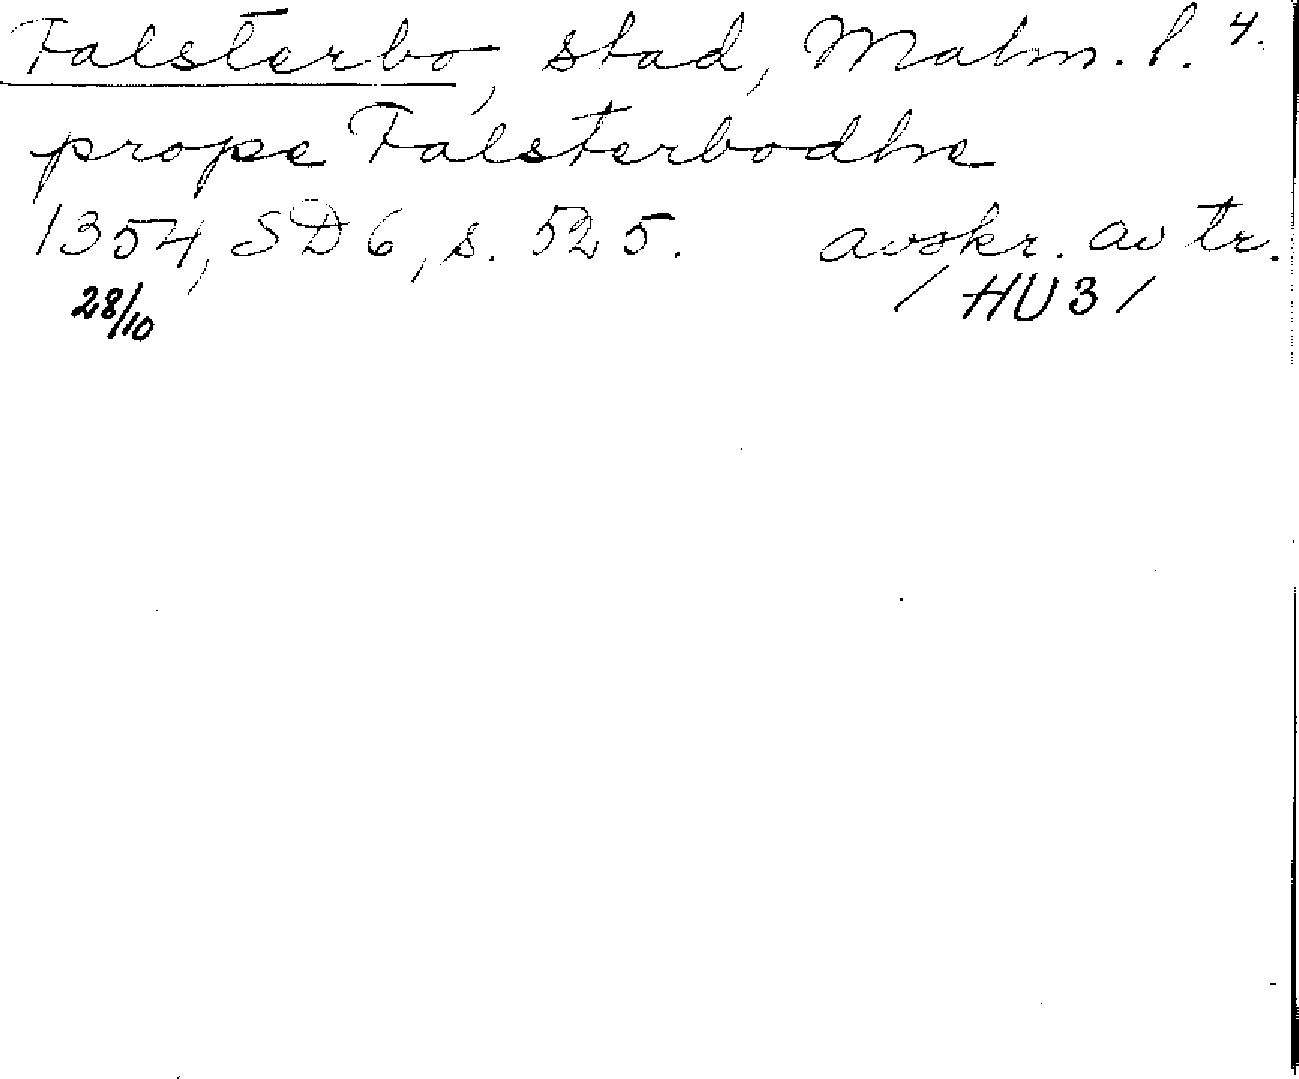 Falsterbo, stad, Malm. l. 4.
prope Falsterbodhe
1354, SD 6, s. 525. avskr. av tr.
28/10 / HU 3 /